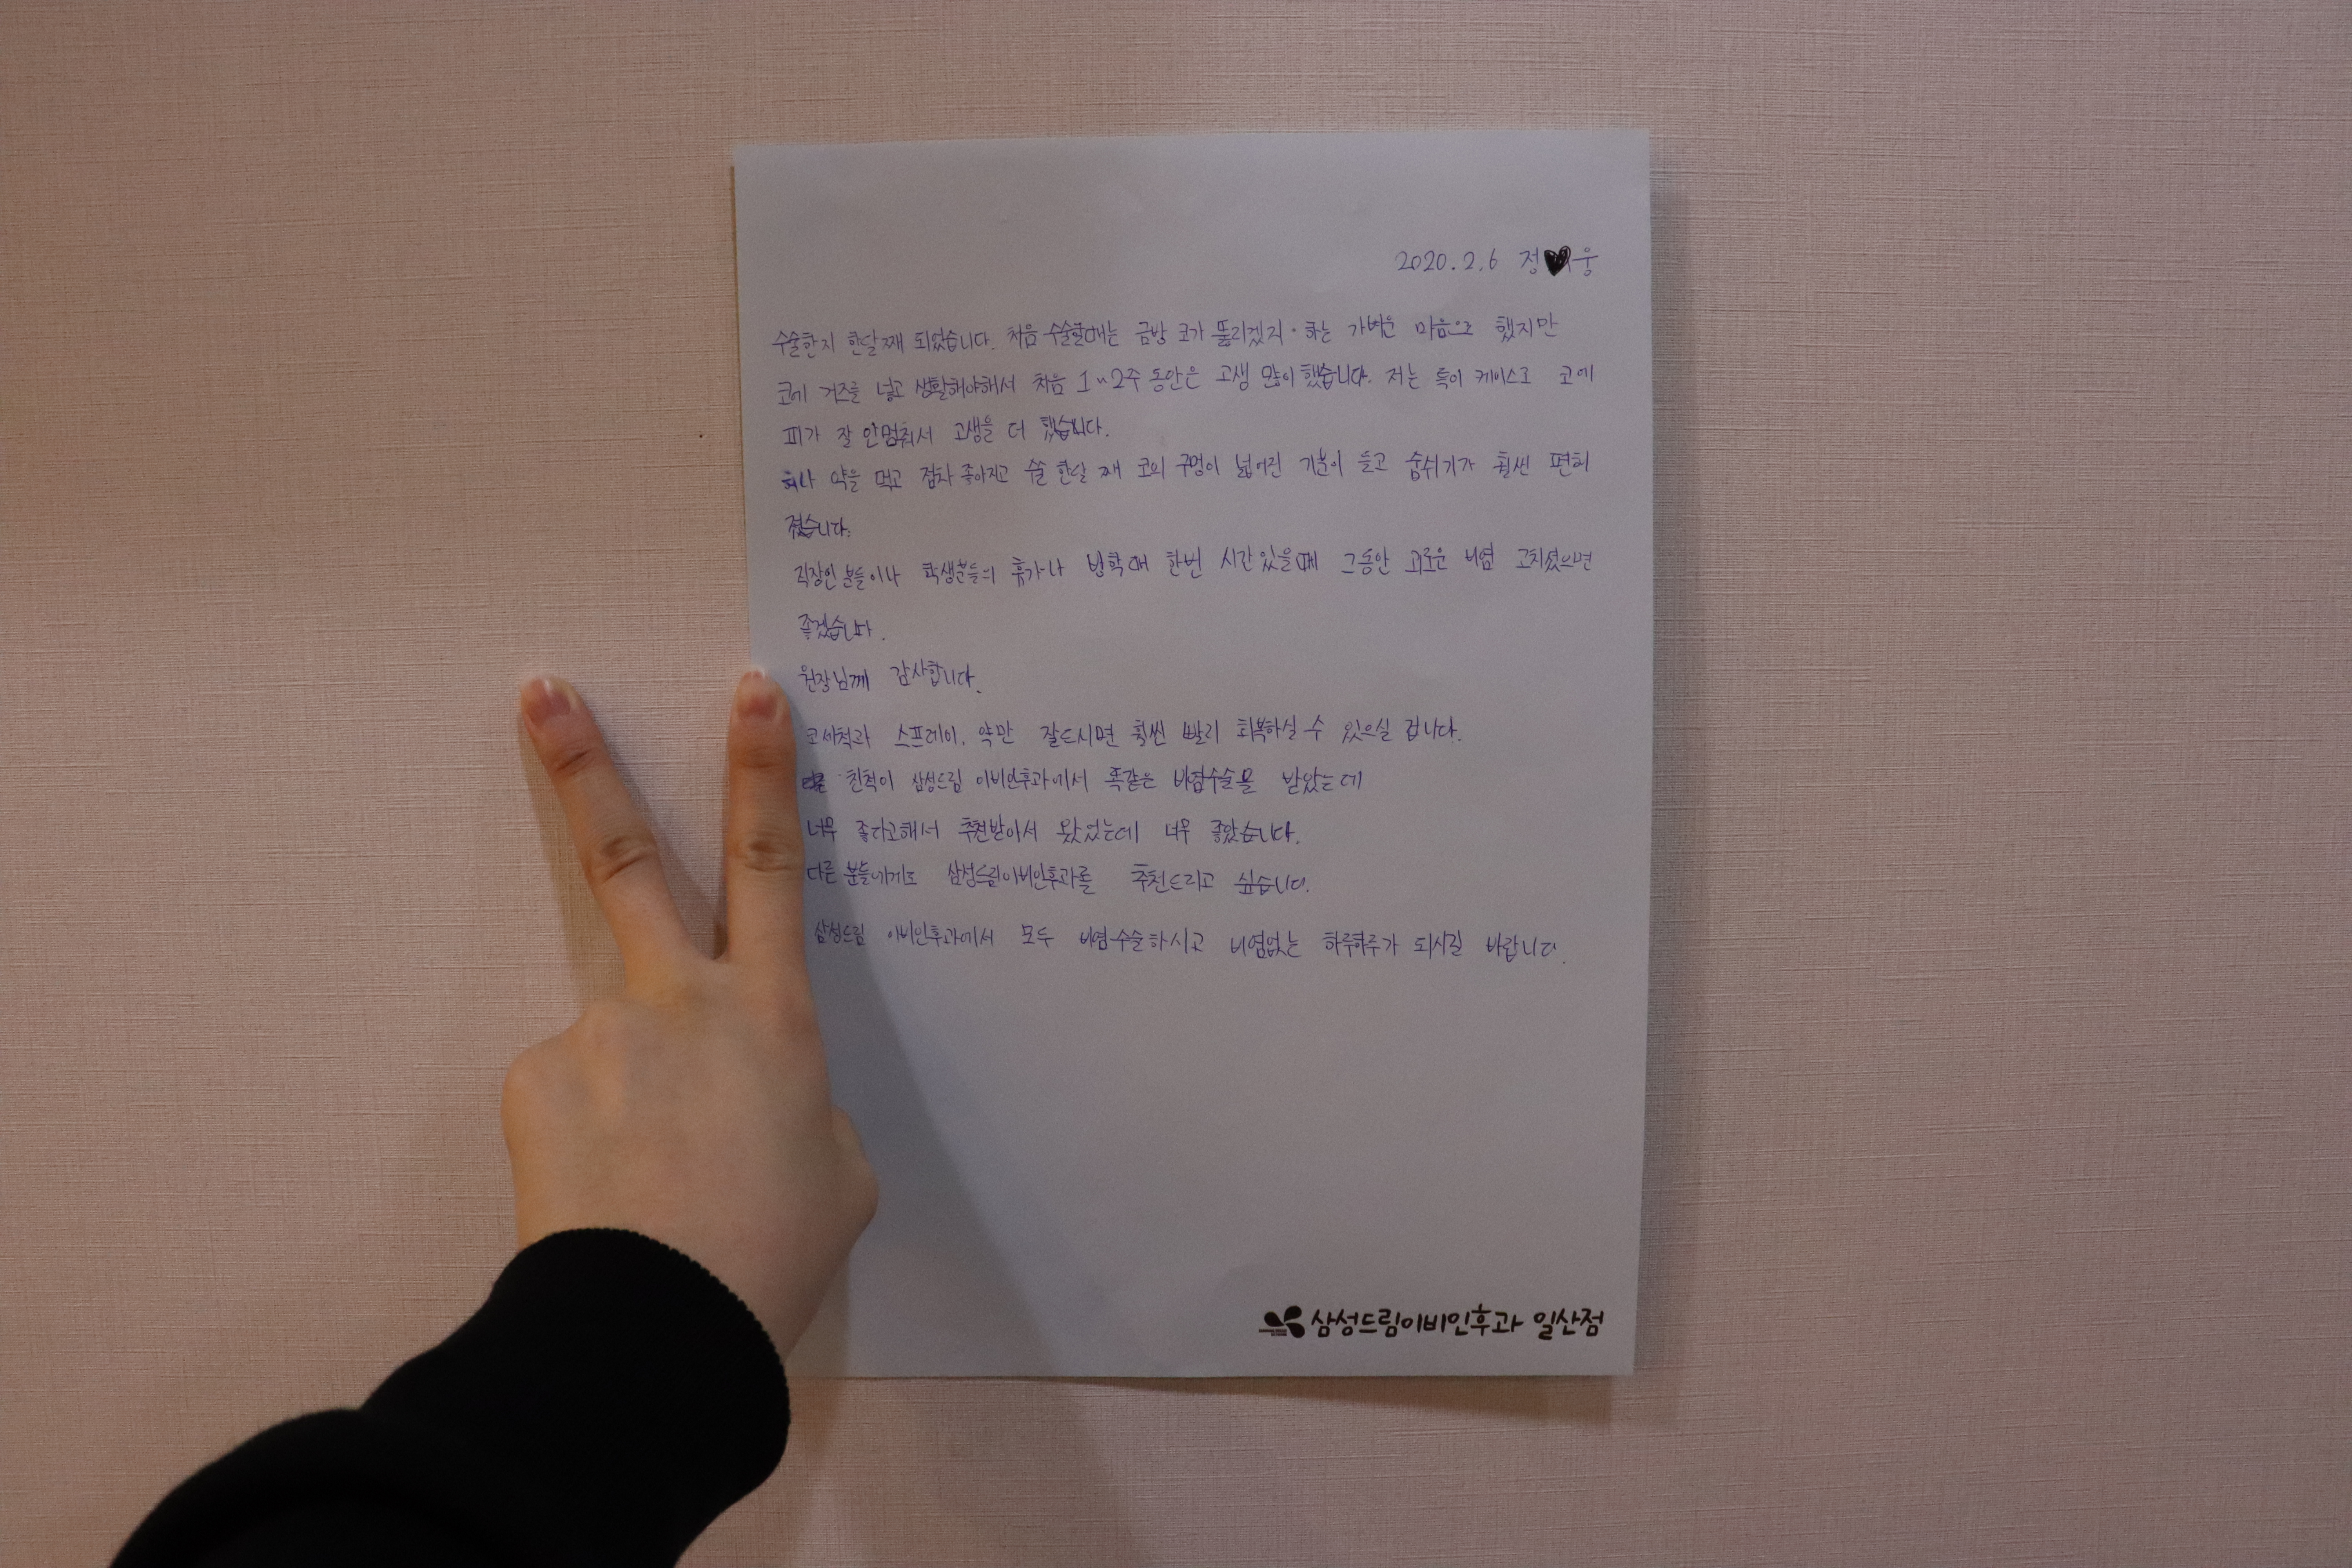 2020.2.6 정♥웅
수술한지 한달째 되었습니다. 처음 수술할때는 금방 코가 뚫리겠지 하는 가벼운 마음으로 했지만
코에 거즈를 넣고 생활해야해서 처음 1~2주 동안은 고생 많이 했습니다. 저는 특이 케이스로 코에
피가 잘 안멈춰서 고생을 더 했습니다.
허나 약을 먹고 점차 좋아지고 수술 한달 째 코의 구멍이 넓어진 기분이 들고 숨쉬기가 훨씬 편해
졌습니다.
직장인 분들이나 학생분들의 휴가나 방학때 한번 시간있을때 그동안 괴로운 비염 고치셨으면
좋겠습니다.
원장님께 감사합니다.
코세척과 스프레이, 약만 잘드시면 훨씬 빨리 회복하실 수 있으실 겁니다.
친척이 삼성드림 이비인후과에서 똑같은 비염수술을 받았는데
너무 좋다고해서 추천받아서 왔었는데 너무 좋았습니다.
다른 분들에게도 삼성드림이비인후과를 추천드리고 싶습니다.
삼성드림 이비인후과에서 모두 비염수술하시고 비염없는 하루하루가 되시길 바랍니다.
삼성드림이비인후과 일산점